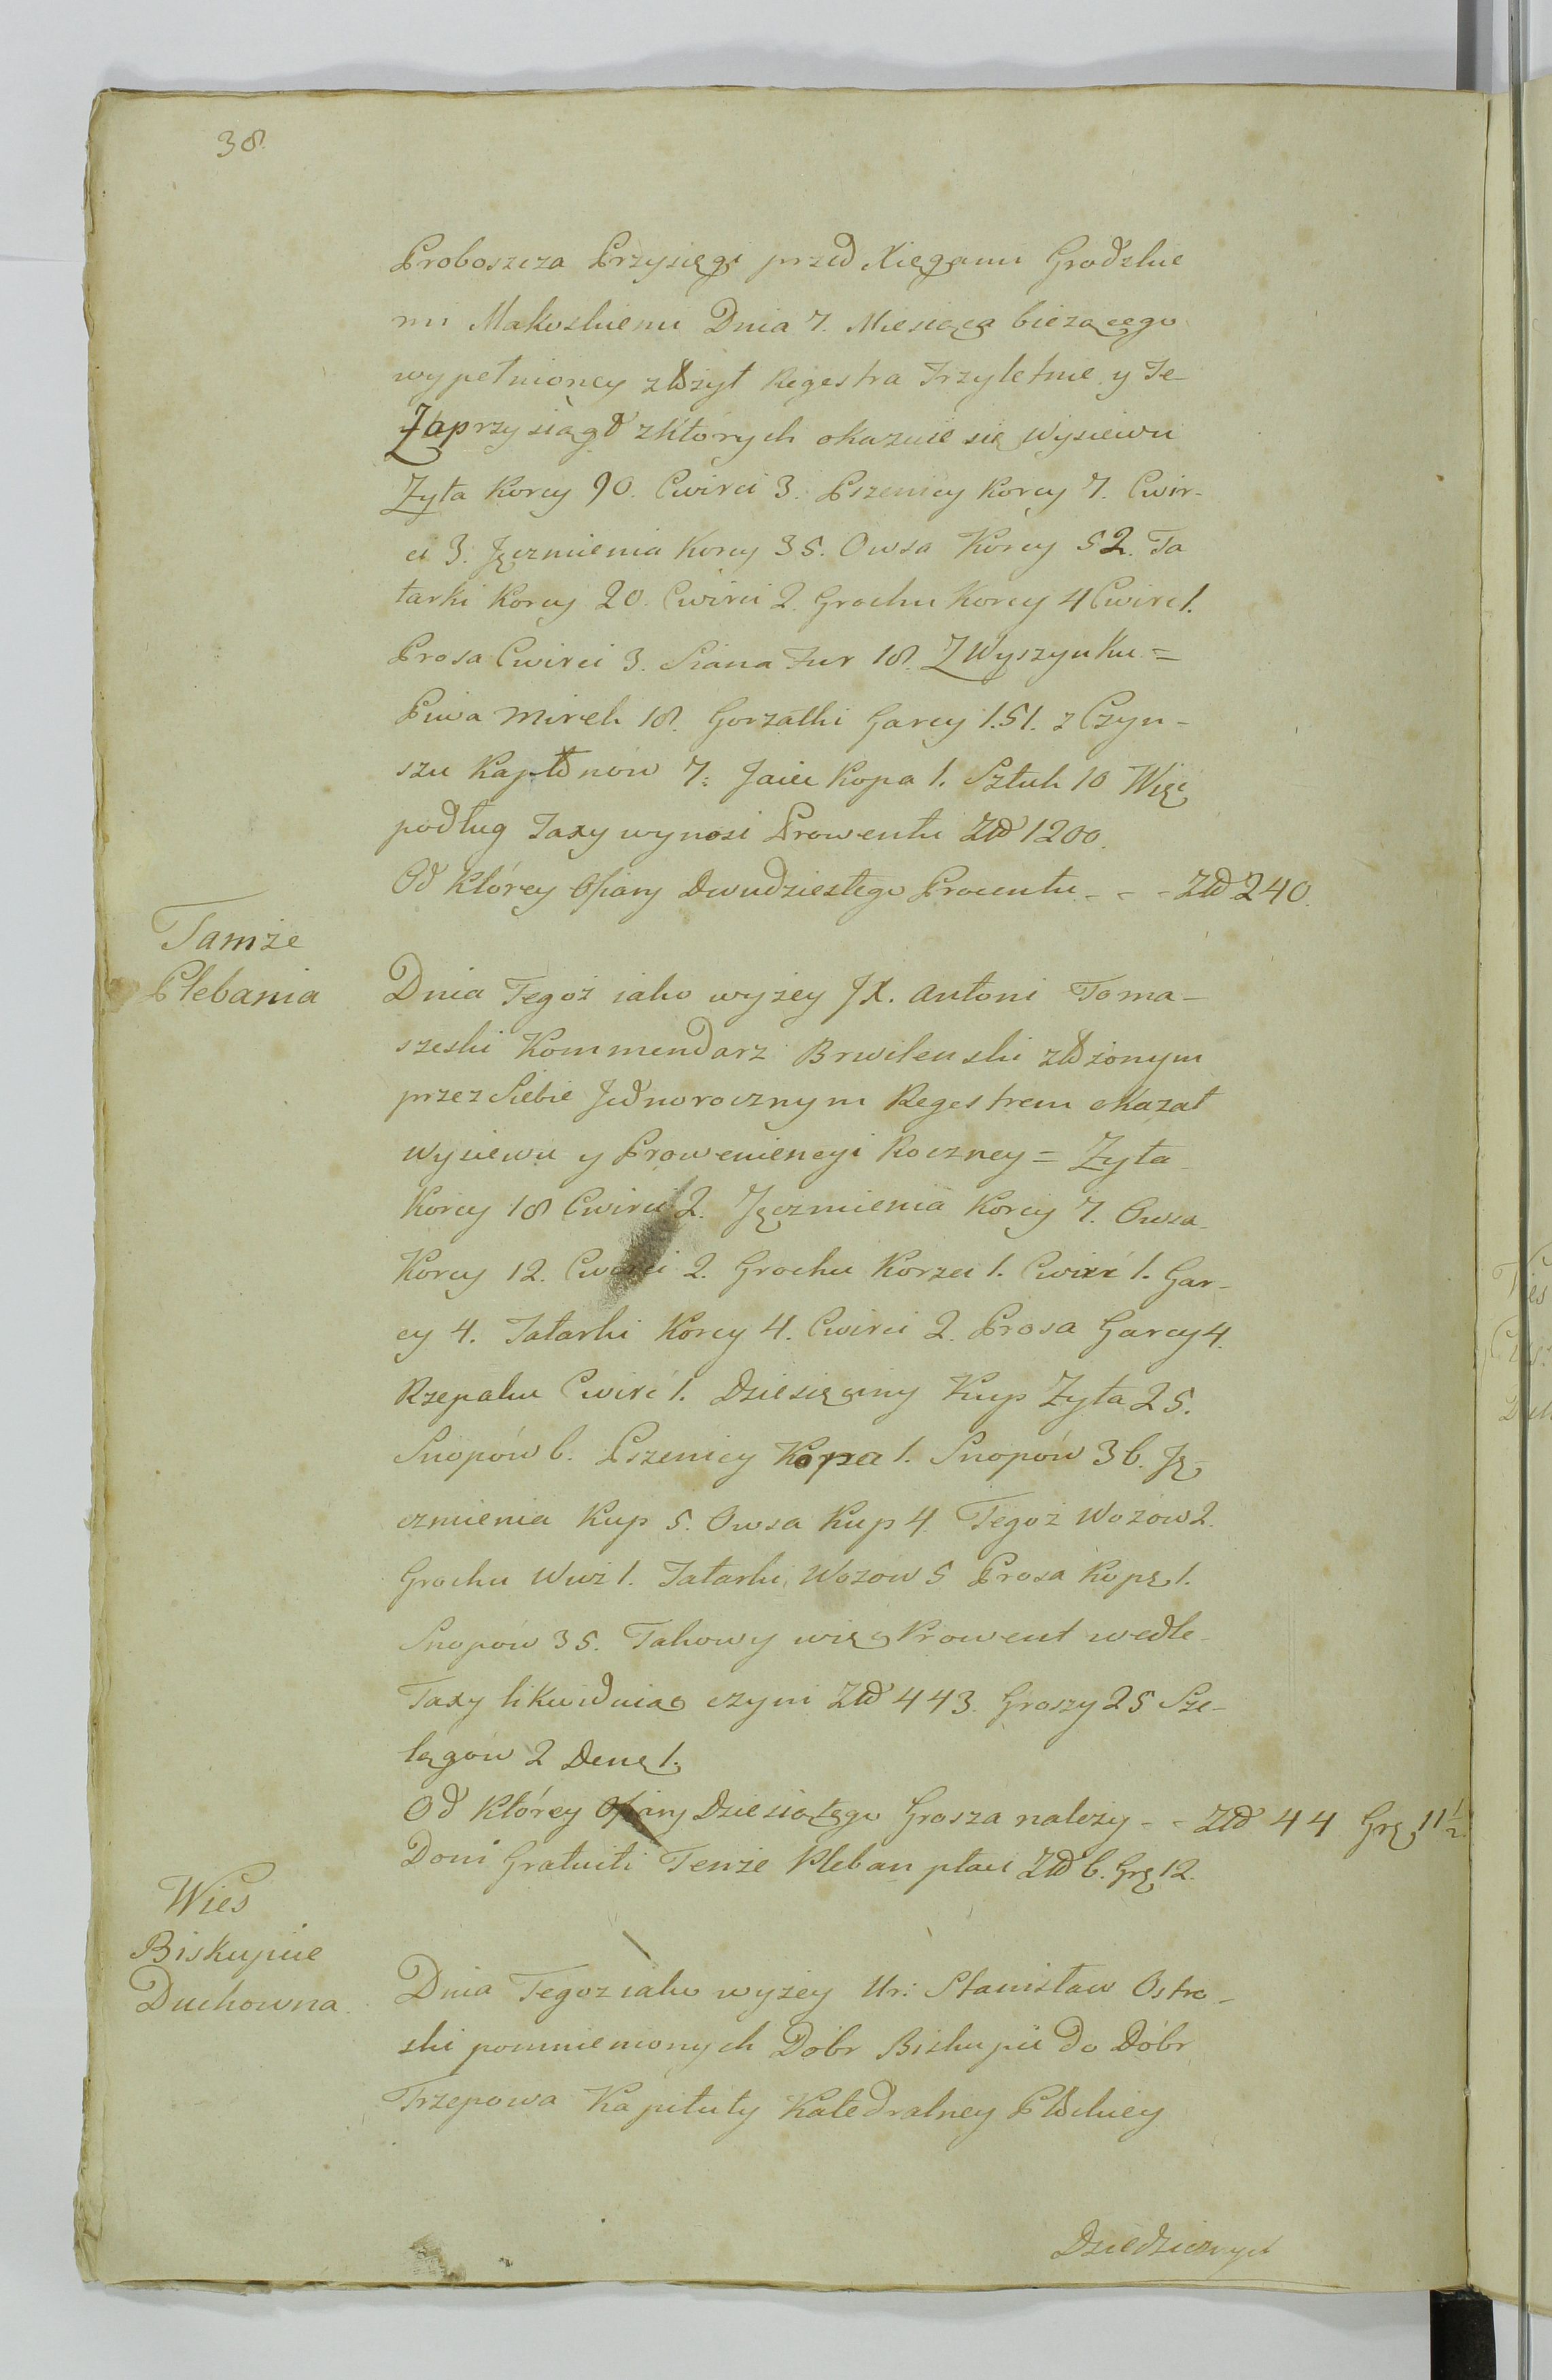 38.
Proboszcza Przysięgi przed Xięgami Grodzkie
mi Makoskiemi Dnia 7. Miesiąca bieżącego
wypełnioney złożył Regestra Trzyletnie y Te
Zaprzysiągł z których okazuie się Wysiewu
Zyta Korcy 90. Cwirci 3. Pszenicy Korcy 7. Cwir-
ci 3. Jęczmienia Korcy 35. Owsa Korcy 52. Ta
tarki Korcy 20. Cwirci 2. Grochu Korcy 4 Cwirc 1.
Prosa Cwirci 3. Siana Fur 18. Z Wyszynku =
Piwa Mirek 18. Gorzałki Garcy 151. z Czyn-
szu Kapłonów 7: Jaiec Kopa 1. Sztuk 10 Więc
podług Taxy wynosi Prowentu Złł 1200.
Od Którey Ofiary Dwudziestego Procentu - - - Złł 240.
Tamże
Plebania
Dnia Tegoż iako wyżey JX. Antoni Toma-
szeski Kommendarz Brwilenski złożonym
przez Siebie Jednorocznym Regestrem okazał
wysiewu y Proweniencyi Roczney = Zyta
Korcy 18 Cwirci 2. Jęczmienia Korcy 7. Owsa
Korcy 12. Cwirci 2. Grochu Korzec 1. Cwirć 1. Gar-
cy 4. Tatarki Korcy 4. Cwirci 2. Prosa Garcy 4.
Rzepaku Cwirć 1. Dziesięciny Kup Zyta 25.
Snopów 6. Pszenicy Kopa 1. Snopów 36. Ję-
czmienia Kup 5. Owsa Kup 4. Tegoż Wozów 2.
Grochu Wóz 1. Tatarki Wozów 5 Prosa Kopę 1.
Snopów 35. Takowy więc Prowent wedle
Taxy likwiduiąc czyni Złł 443. Groszy 25 Sze-
lągów 2 Denę 1.
Od Którey Ofiary Dziesiątego Grosza należy - - Złł 44 Grę 11½
Doni Gratuiti Tenże Pleban płaci Złł 6. Grę 12.
Wies
Biskupice
Duchowna.
Dnia Tegoż iako wyżey Ur: Stanisław Ostro-
ski pomnienionych Dóbr Biskupic do Dóbr
Trzepowa Kapituły Katedralney Płockiey
Dziedzicznych